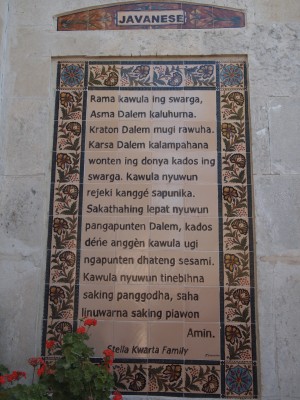 JAVANESE
Rama kawula ing swarga,
Asma Dalem kaluhurna.
Kraton Dalem mugi rawuha.
Karsa Dalem kalampahana
wonten ing donya kados ing
swarga. Kawula nyuwun
rejeki kanggé sapunika.
Sakathahing lepat nyuwun
pangapunten Dalem, kados
déńe anggèn kawula ugi
ngapunten dhateng sesami.
Kawula nyuwun tinebihna
saking panggodha, saha
linuwarna saking piawon
Amin.
Stella Kwarta Family